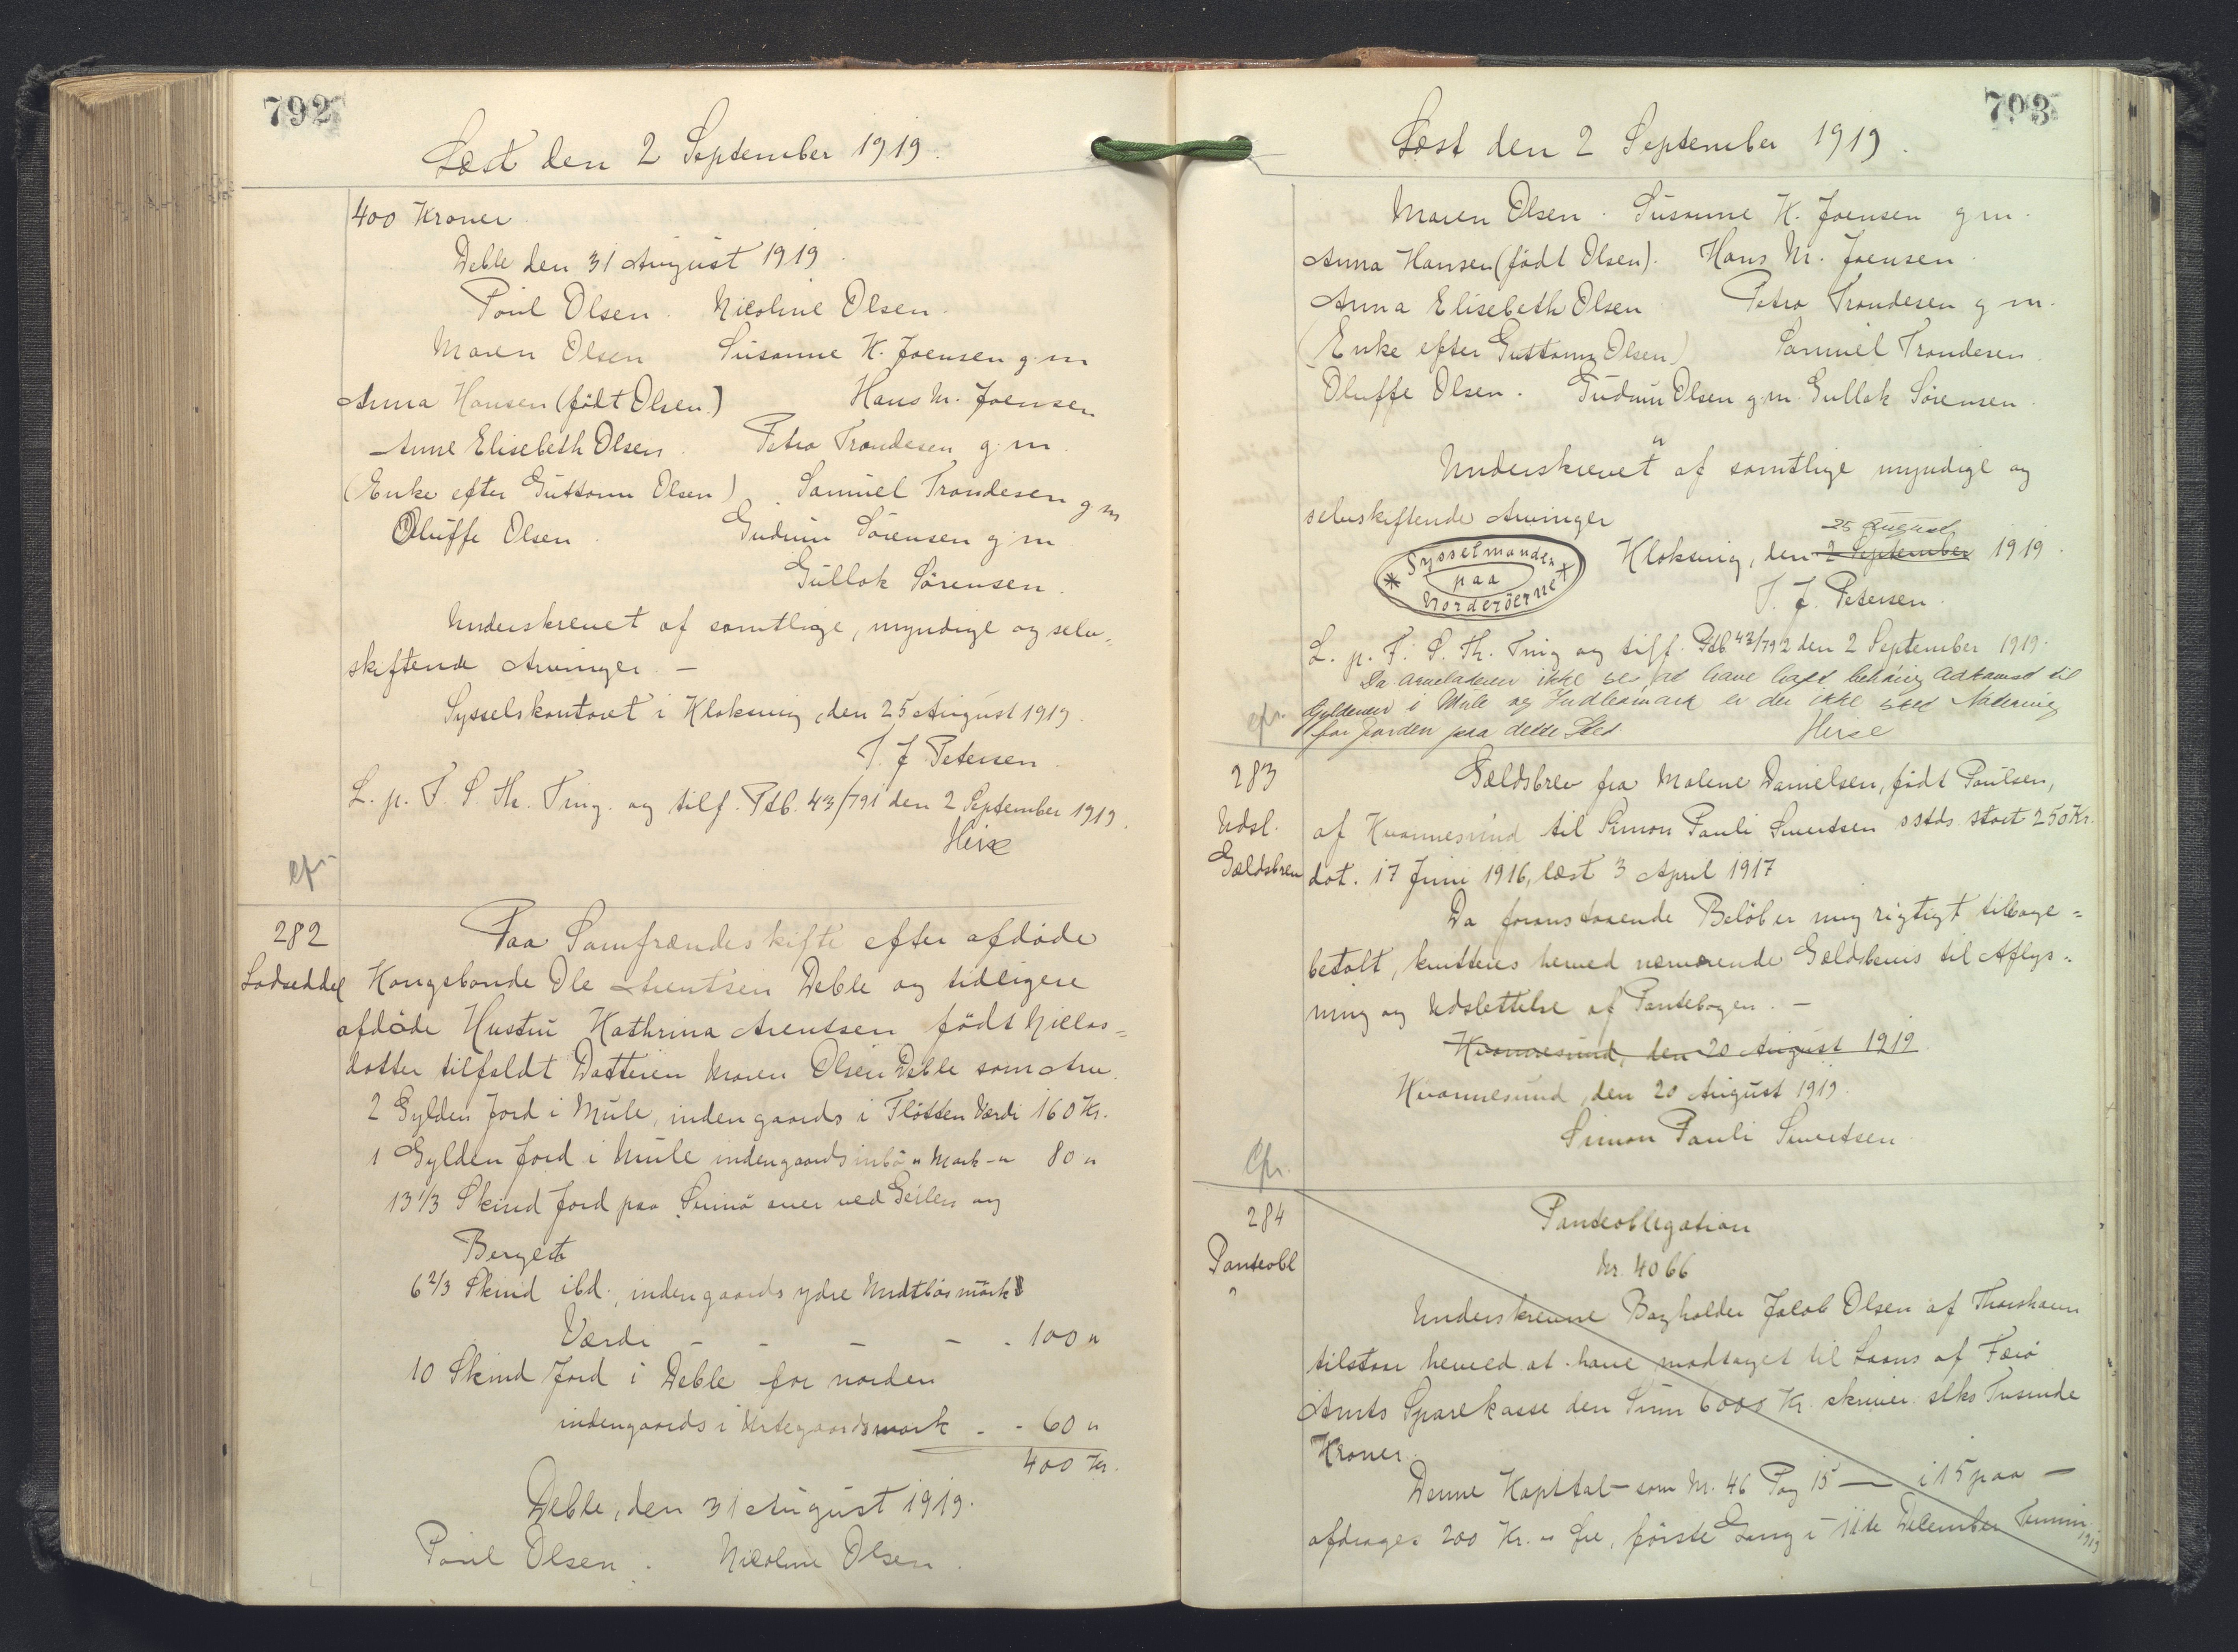 792
Læst den 2 September 1919.
400 Kroner
Deble den 31 August 1919.
Poul Olsen. Nicoline Olsen.
Maren Olsen Susanne K. Joensen g m
Anna Hansen (födt Olsen.) Hans M. Joensen
Anne Elisebeth Olsen. Petra Trondesen g m.
(Enke efter Guttorm Olsen) Samuel Trondesen g m
Oluffe Olsen. Gudrun Sörensen g m
Gullok Sörensen.
Underskrevet af samtlige, myndige og selv-
skiftende Arvinger. —
Sysselskontoret i Kloksvig, den 25 August 1919.
J. J. Petersen.
L. p. F. S. Th. Ting. og tilf. Ptb. 43/791 den 2 September 1919.
Heise
cfr.
282
Lodseddel
Paa Samfrændeskifte efter afdöde
Kongsbonde Ole Arentsen Deble og tidligere
afdöde Hustru Kathrina Arentsen födt Niclas-
datter tilfaldt Datteren Maren Olsen Deble som Arv.
2 Gylden Jord i Mule, indengaards i Flötten Værdi 160 Kr.
1 Gylden Jord i Mule indengaards Mark - " 80 "
13 1/3 Skind Jord paa over ved Geilen og
Berget
6 2/3 Skind ibd., indengaards ydre
Værdi - - - - . 100 "
10 Skind Jord i Deble for norden
indengaards i Urtegaardsmark - - 60 "
400 Kr.
Deble, den 31 August 1919.
Poul Olsen. Nicoline Olsen.
793
Læst den 2 September 1919.
Maren Olsen. Susanne K. Joensen g m.
Anna Hansen (födt Olsen). Hans M. Joensen.
Anna Elisebeth Olsen Petra Trondesen g m.
(Enke efter Guttorm Olsen) Samuel Trondesen.
Oluffe Olsen. Gudrun Olsen g.m. Gullok Sörensen.
Underskrevet af samtlige myndige og
selvskiftende Arvinger
Sysselmanden
paa
Norderöerne
25 August
Kloksvig, den 2 September 1919.
J. J. Petersen.
L. p. F. S. Th. Ting og tilf. Ptb 43/792 den 2 September 1919.
Da Arveladeren ikke ses at have haft behörig Adkomst til
Gyldenen i Mule og er der ikke sket Notering
for Jorden paa dette Sted.
Heise
cfr.
283
Udsl.
Gældsbrev
Gældsbrev fra Malene Danielsen, födt Poulsen,
af Kvannesund til Simon Pauli Sivertsen sstds stort 250 Kr.
dat. 17 Juni 1916, læst 3 April 1917
Da foranstaaende Belöb er mig rigtigt tilbage-
betalt, kvitteres herved nærværende Gældsbevis til Aflys-
ning og Udslettelse af Pantebogen. —
Kvannesund, den 20 August 1919.
Kvannesund, den 20 August 1919.
Simon Pauli Sivertsen
Cfr.
284
Panteobl
Panteobligation
Nr. 4066
Underskrevne Bogholder Jacob Olsen af Thorshavn
tilstaar herved at have modtaget til Laans af Færö
Amts Sparekasse den Sum 6000 Kr. skriver seks Tusinde
Kroner.
Denne Kapital - som Nr. 46 Pag 15 — i 15 paa —
afdrages 200 Kr. förste Gang i 11te December Termin
1919